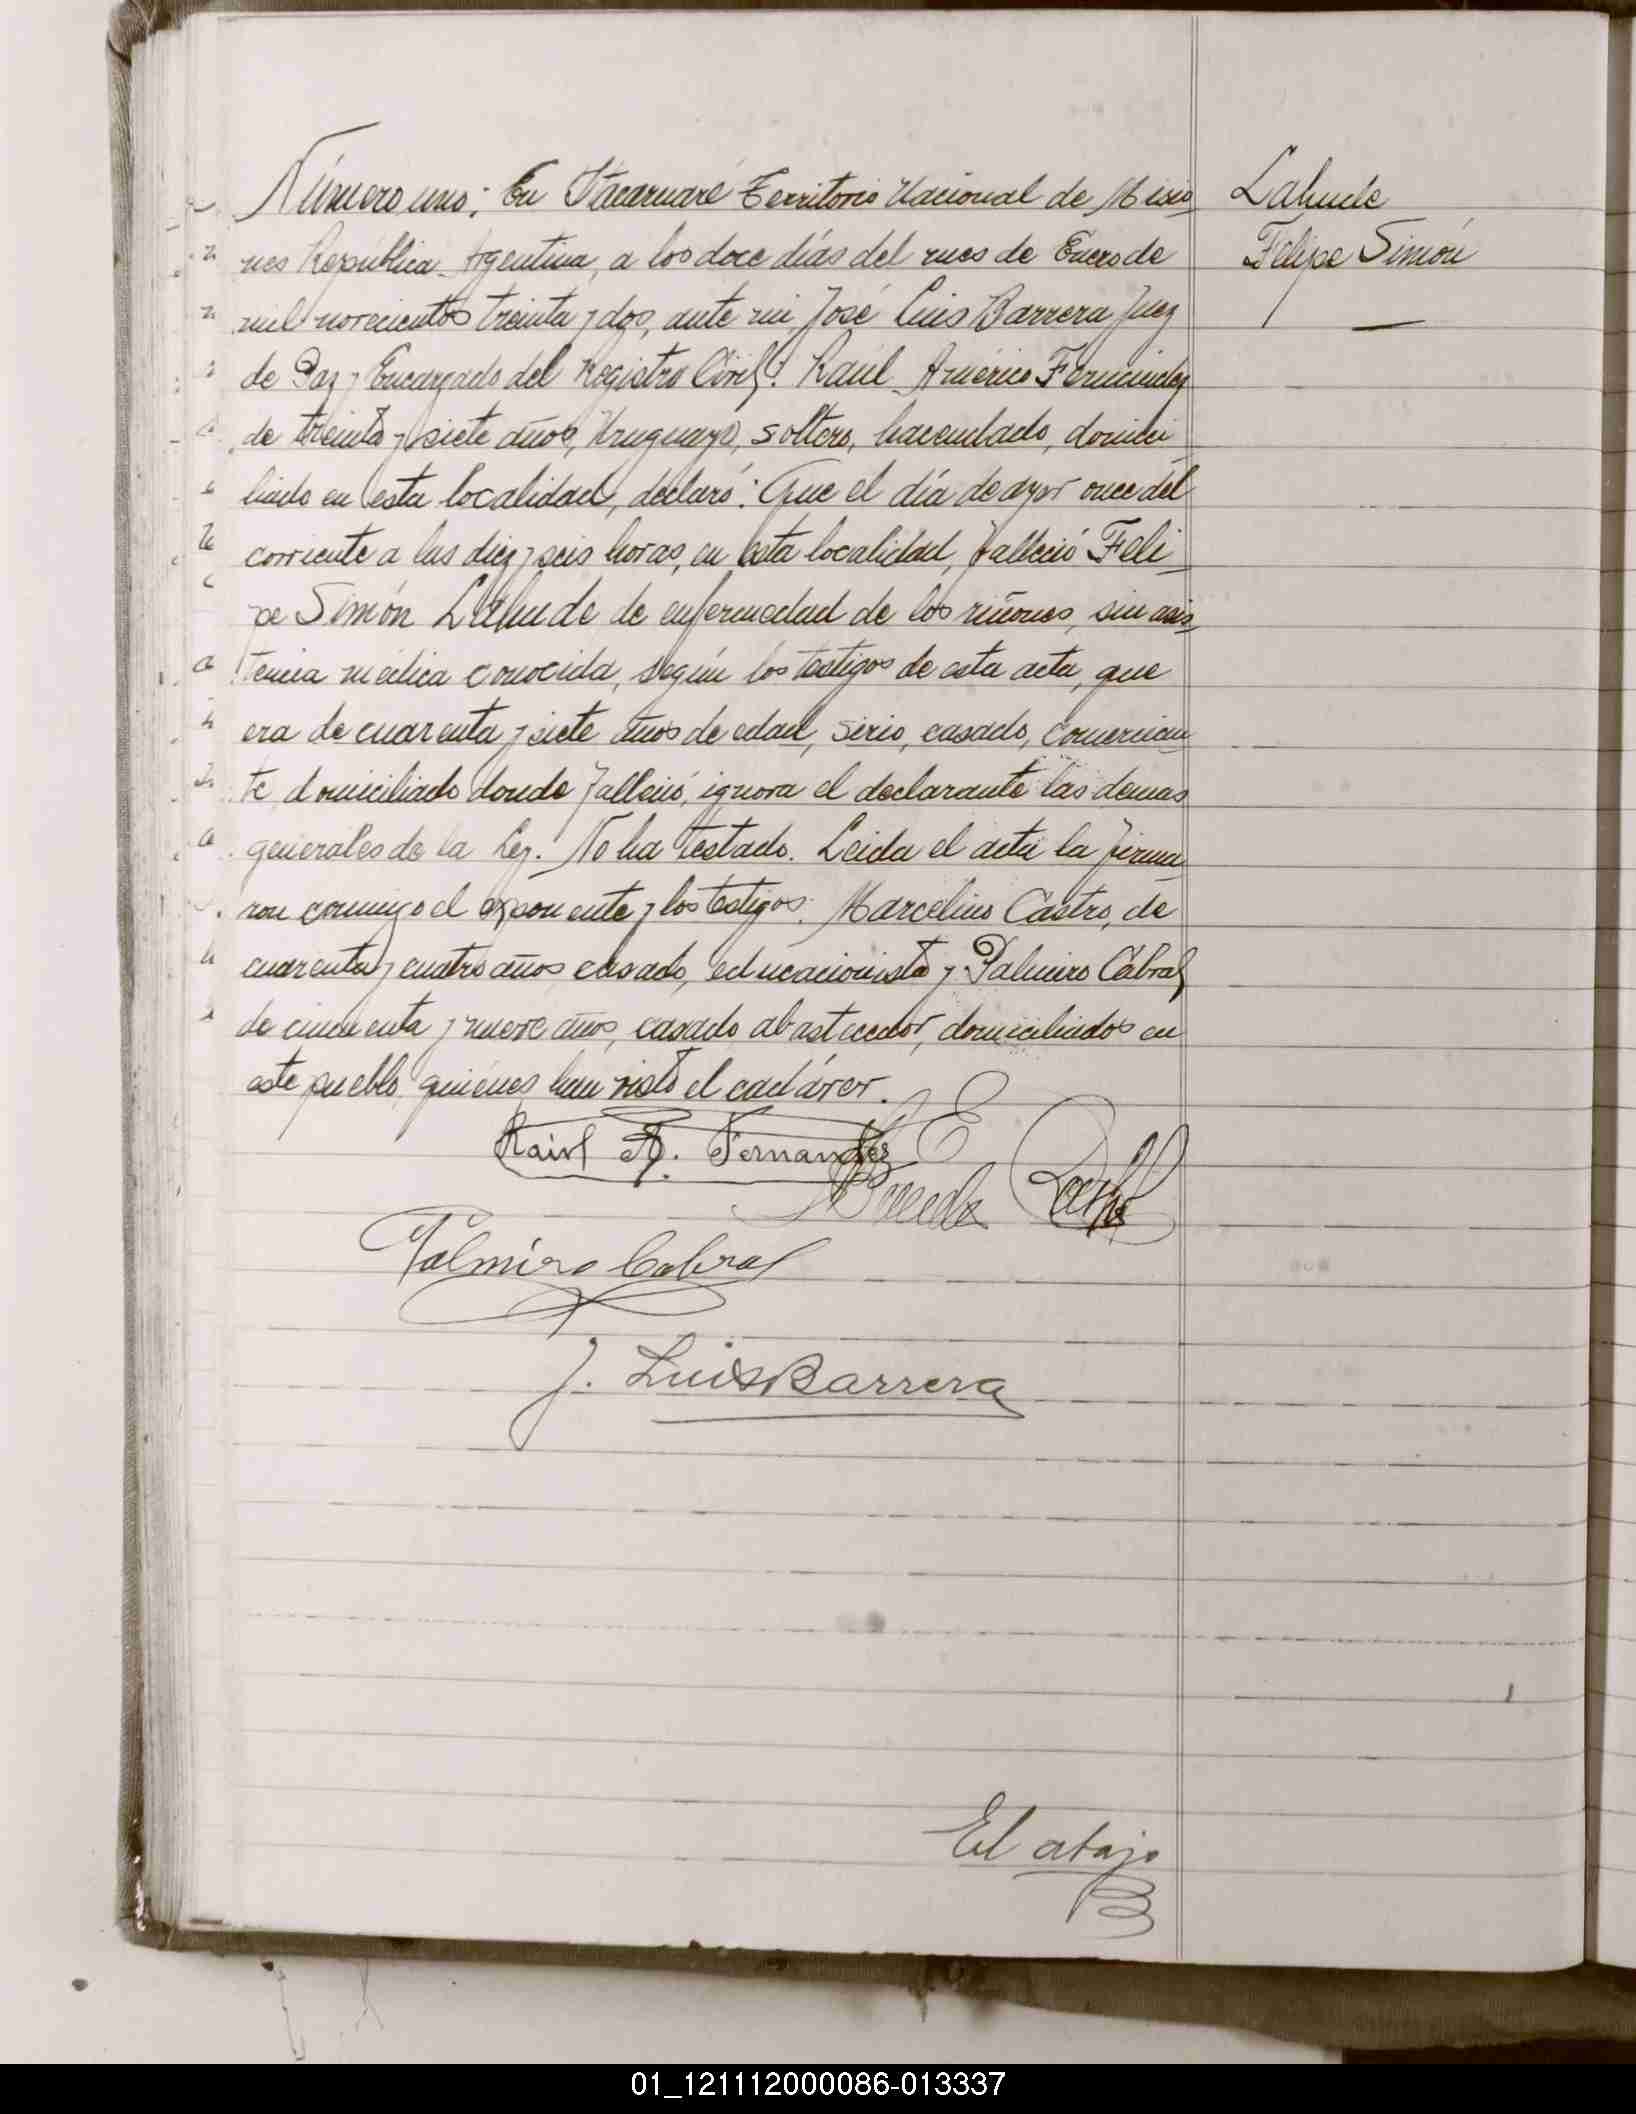 Número uno: En Itacaruaré Territorio Nacional de Misio
nes República Argentina, a los doce días del mes de Enero de
mil novecientos treinta y dos, ante mi José Luis Barrera Juez
de Paz y Encargado del Registro Civil: Raúl Américo Fernández
de treinta y siete años, Uruguayo, soltero, hacendado, domici
liado en esta localidad, declaró: Que el día de ayer once del
corriente a las diez y seis horas, en esta localidad, falleció Feli
pe Simón Lahude de enfermedad de los riñones, sin asis
tencia médica conocida, según los testigos de esta acta, que
era de cuarenta y siete años de edad, sirio, casado, comercian
te domiciliado donde falleció, ignora el declarante las demas
generales de la Ley. No ha testado. Leida el acta la firma
ron conmigo el exponente y los testigos: Marcelino Castro, de
cuarenta y cuatro años casado, educacionista y Palmiro Cabral
de cincuenta y nueve años, casado abastecedor, domiciliados en
este pueblo quiénes han visto el cadáver.
Raúl A. Fernandez
Palmiro Cabral
J. Luis Barrera
El abajo
Lahude
Felipe Simón
01_121112000086-013337